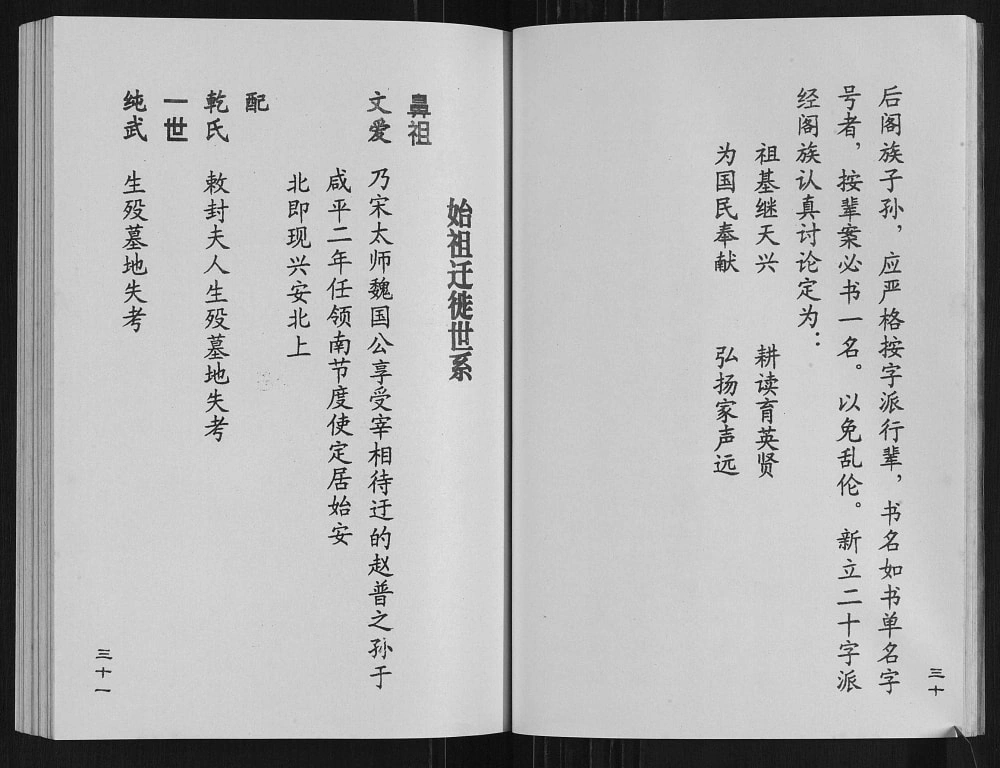 后阁族子孙，应严格按字派行辈，书名如书单名字
号者，按辈案必书一名。以免乱伦。新立二十字派
经阁族认真讨论定为：
祖基继天兴　耕读育英贤
为国民奉献　弘扬家声远
三十
始祖迁徙世系
鼻祖
文爱　乃宋太师魏国公享受宰相待迂的赵普之孙于
咸平二年任领南节度使定居始安
北即现兴安北上
配
乾氏　敕封夫人生殁墓地失考
一世
纯武　生殁墓地失考
三十一